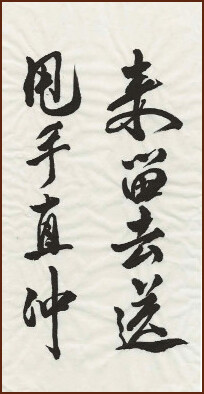 来留去送
甩手直冲